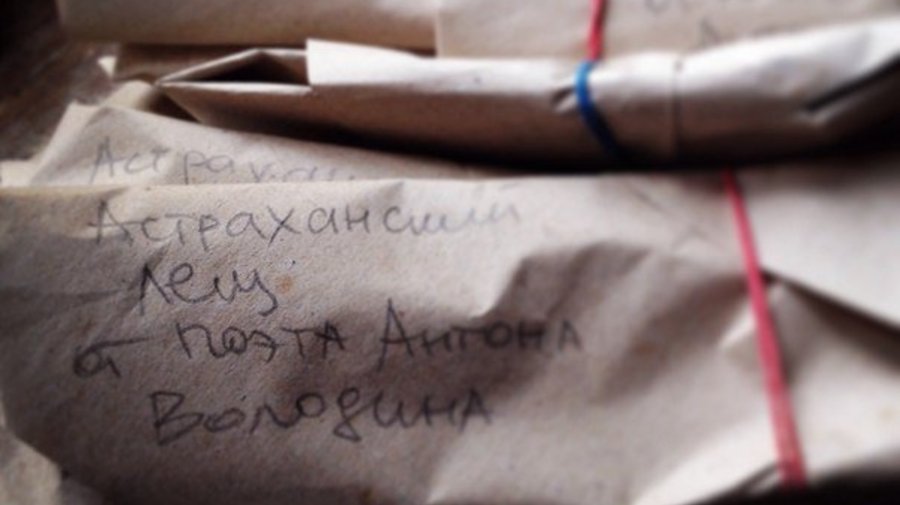 Астрахан
Астраханский
лещ
от поэта Антона
Володина